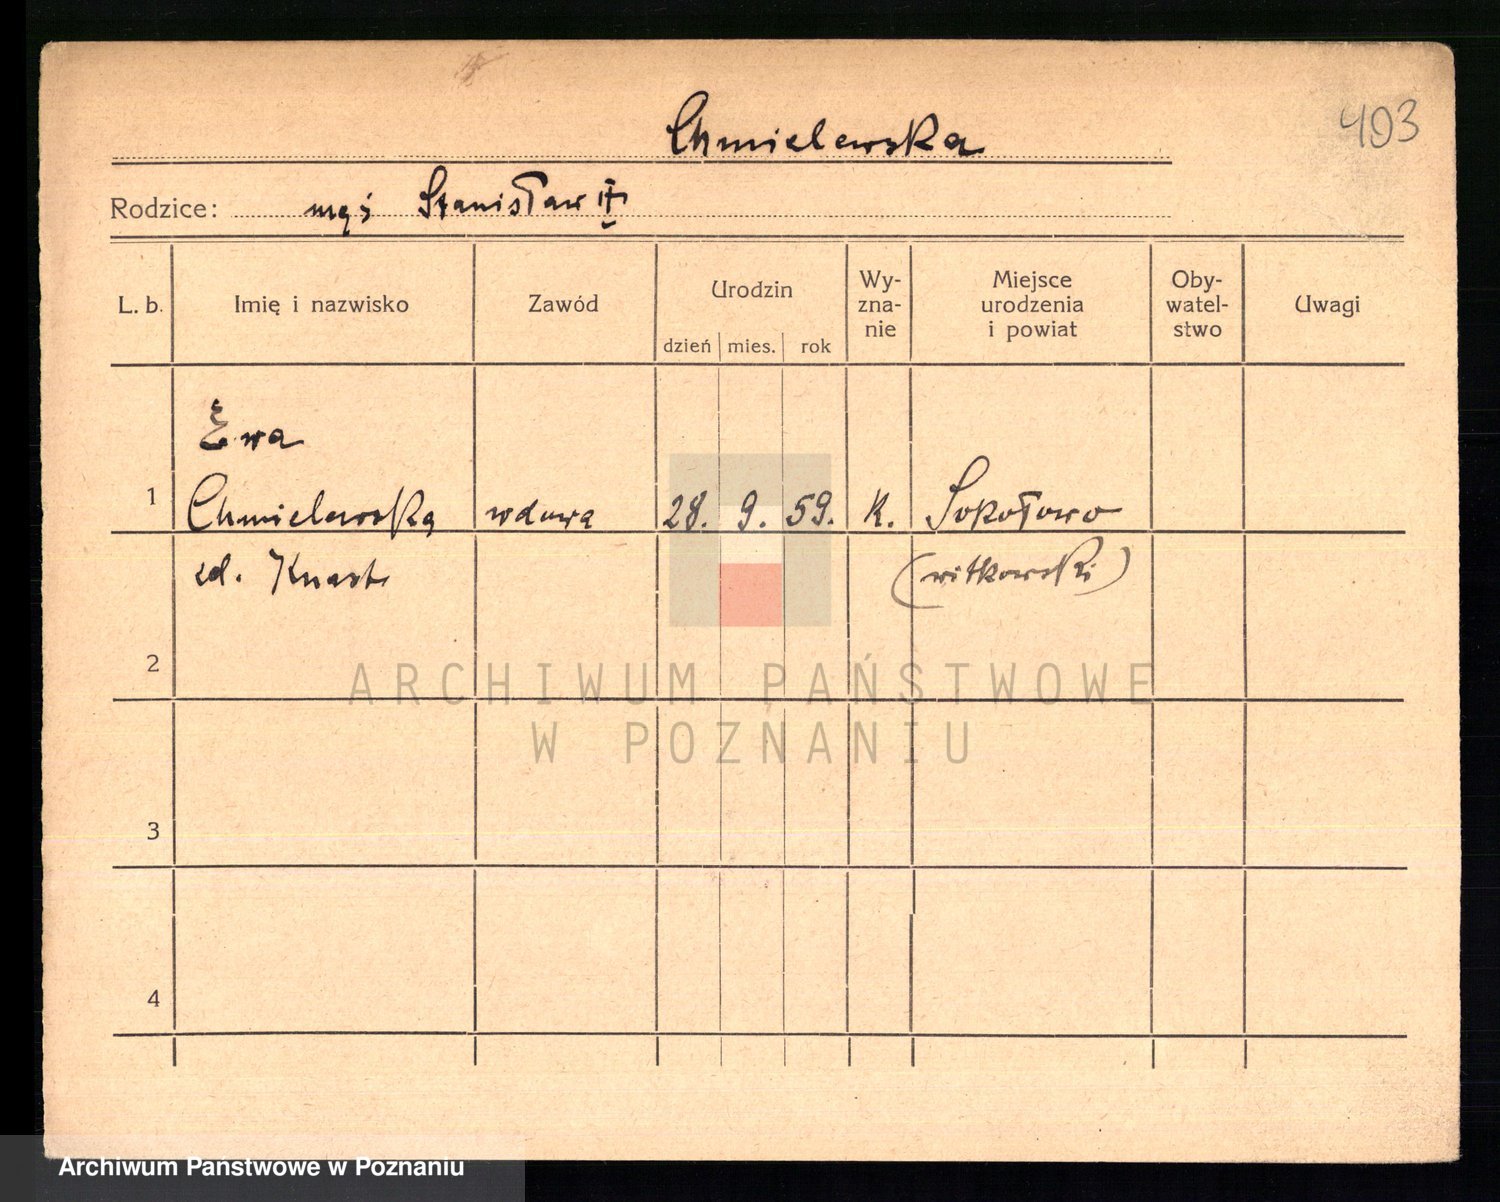 403
Chmielewska
Rodzice: mąż Stanisław
L. b. Imię i nazwisko Zawód Urodzin Wy-zna-nie Miejsce urodzenia i powiat Oby-watel-stwo Uwagi
dzień mies. rok
Ewa
1 Chmielewska wdowa 28. 9. 59. K. Sokołowo
zd. Knast (witkowski)
2
ARCHIWUM PAŃSTWOWE
W POZNANIU
3
4
Archiwum Państwowe w Poznaniu